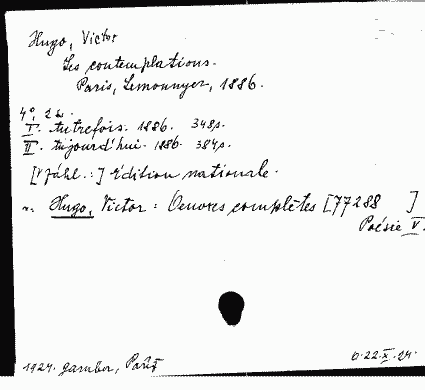 Hugo, Victor
Les contemplations.
Paris, Lemonnyer, 1886.
4°, 2
I. Autrefois. 1886. 348p.
II. Aujourd'hui. 1886. 384p.
édition nationale.
Hugo, Victor: Oeuvres complètes [77288 ]
Poésie V.
1924. Gamber, Paris
22.X.24.